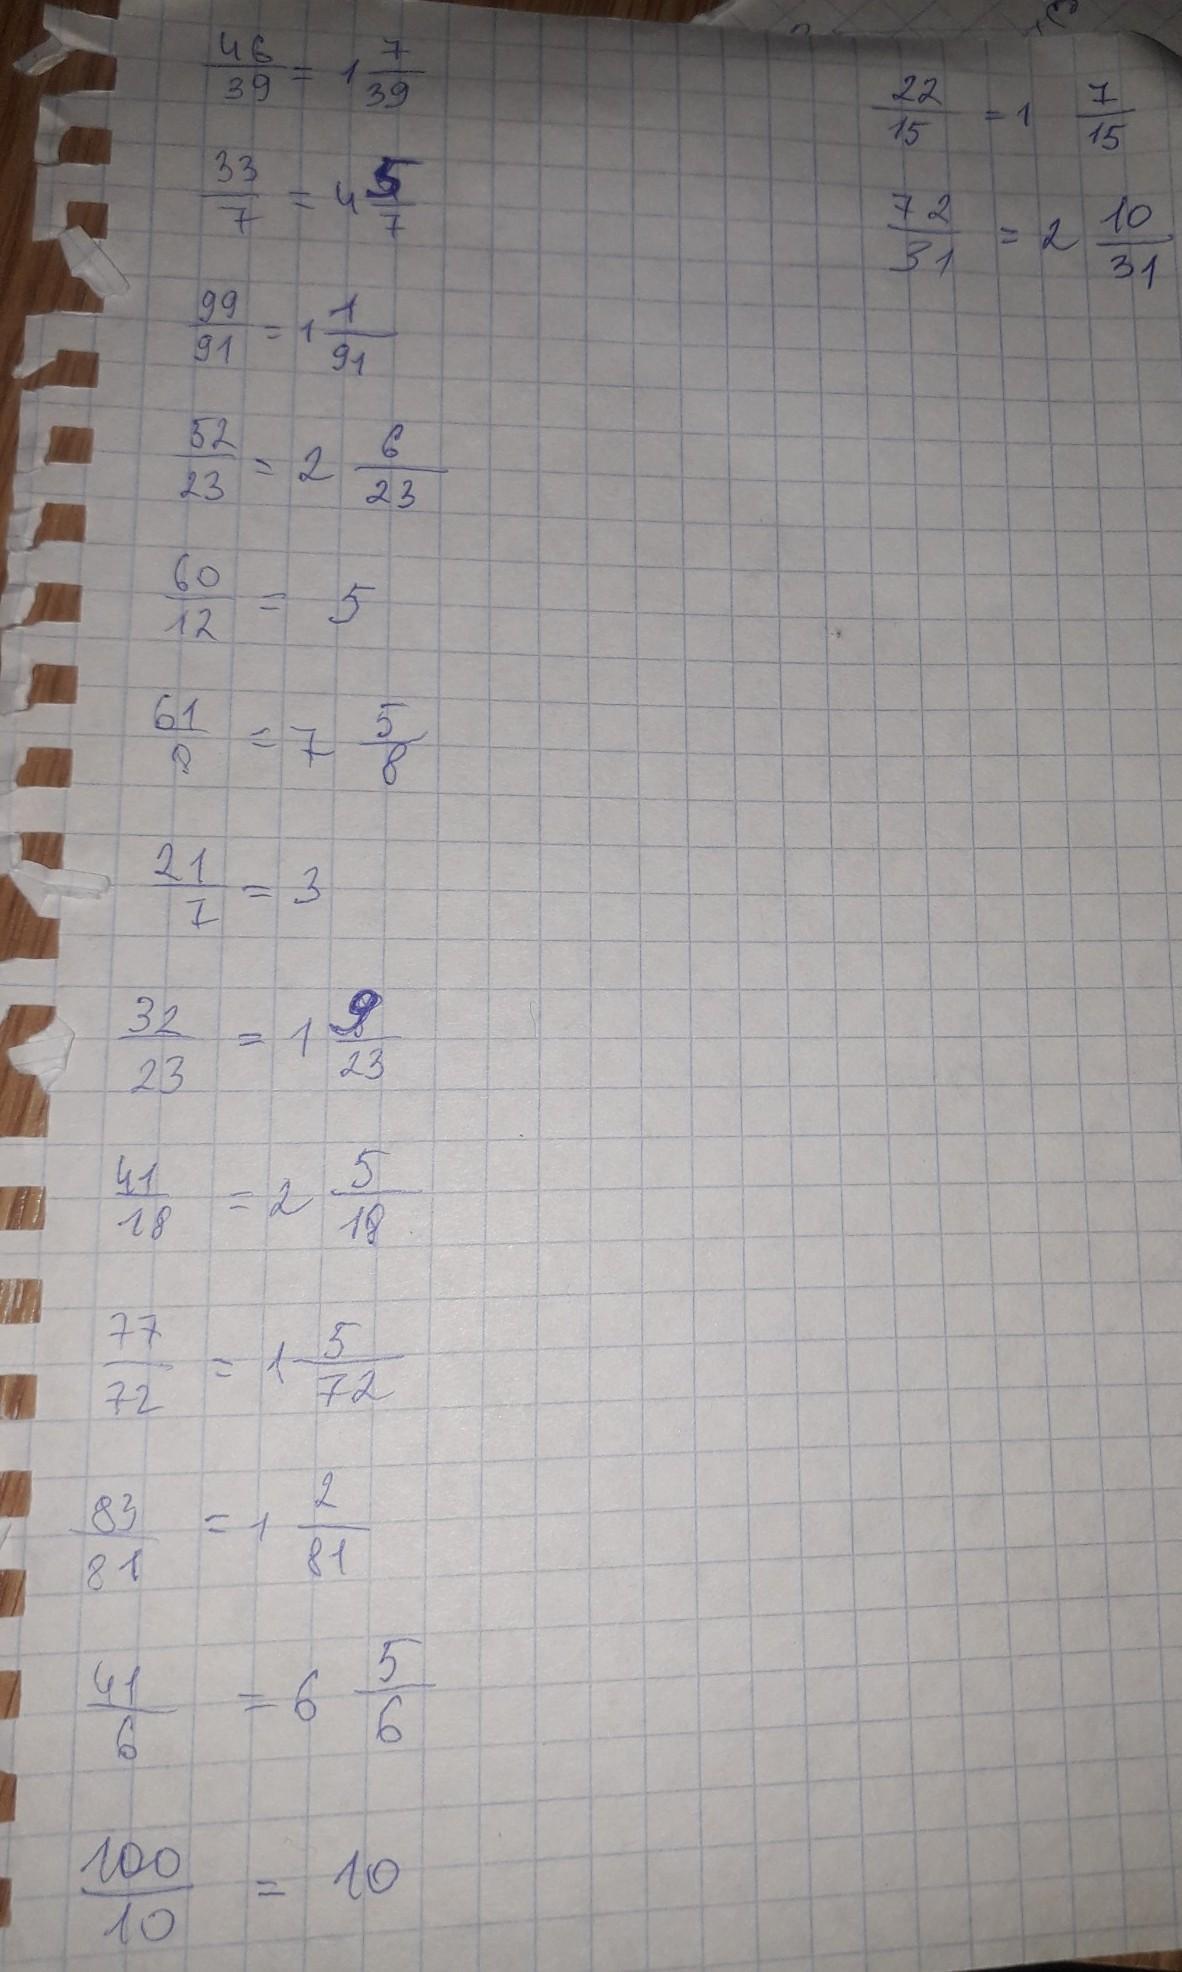 46/39 = 1 7/39
33/7 = 4 5/7
99/91 = 1 1/91
52/23 = 2 6/23
60/12 = 5
61/8 = 7 5/8
21/7 = 3
32/23 = 1 9/23
41/18 = 2 5/18
77/72 = 1 5/72
83/81 = 1 2/81
41/6 = 6 5/6
100/10 = 10
22/15 = 1 7/15
72/31 = 2 10/31